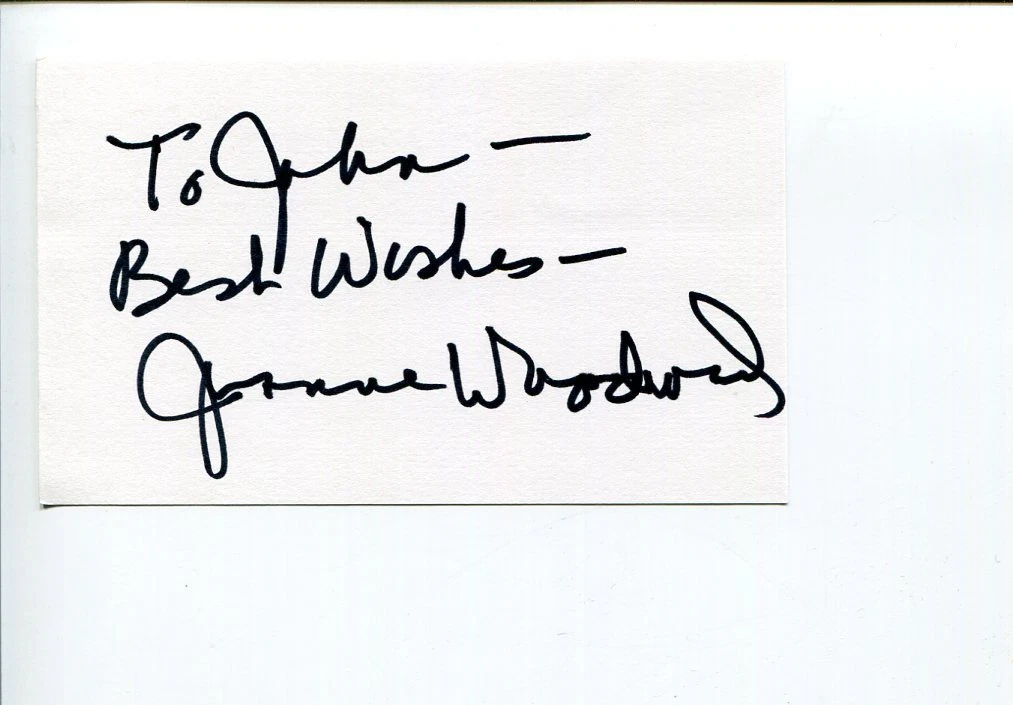 To John —
Best Wishes —
Joanne Woodward